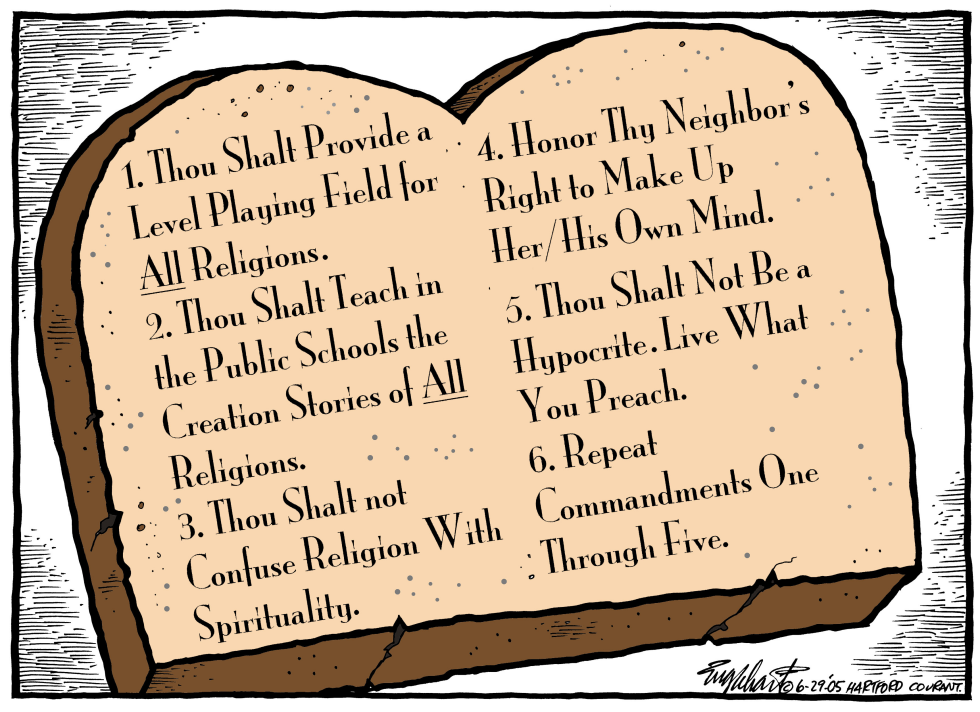 1. Thou Shalt Provide a
Level Playing Field for
All Religions.
2. Thou Shalt Teach in
the Public Schools the
Creation Stories of All
Religions.
3. Thou Shalt not
Confuse Religion With
Spirituality.
4. Honor Thy Neighbor's
Right to Make Up
Her/His Own Mind.
5. Thou Shalt Not Be a
Hypocrite. Live What
You Preach.
6. Repeat
Commandments One
Through Five.
Englehart © 6-29-'05 HARTFORD COURANT.